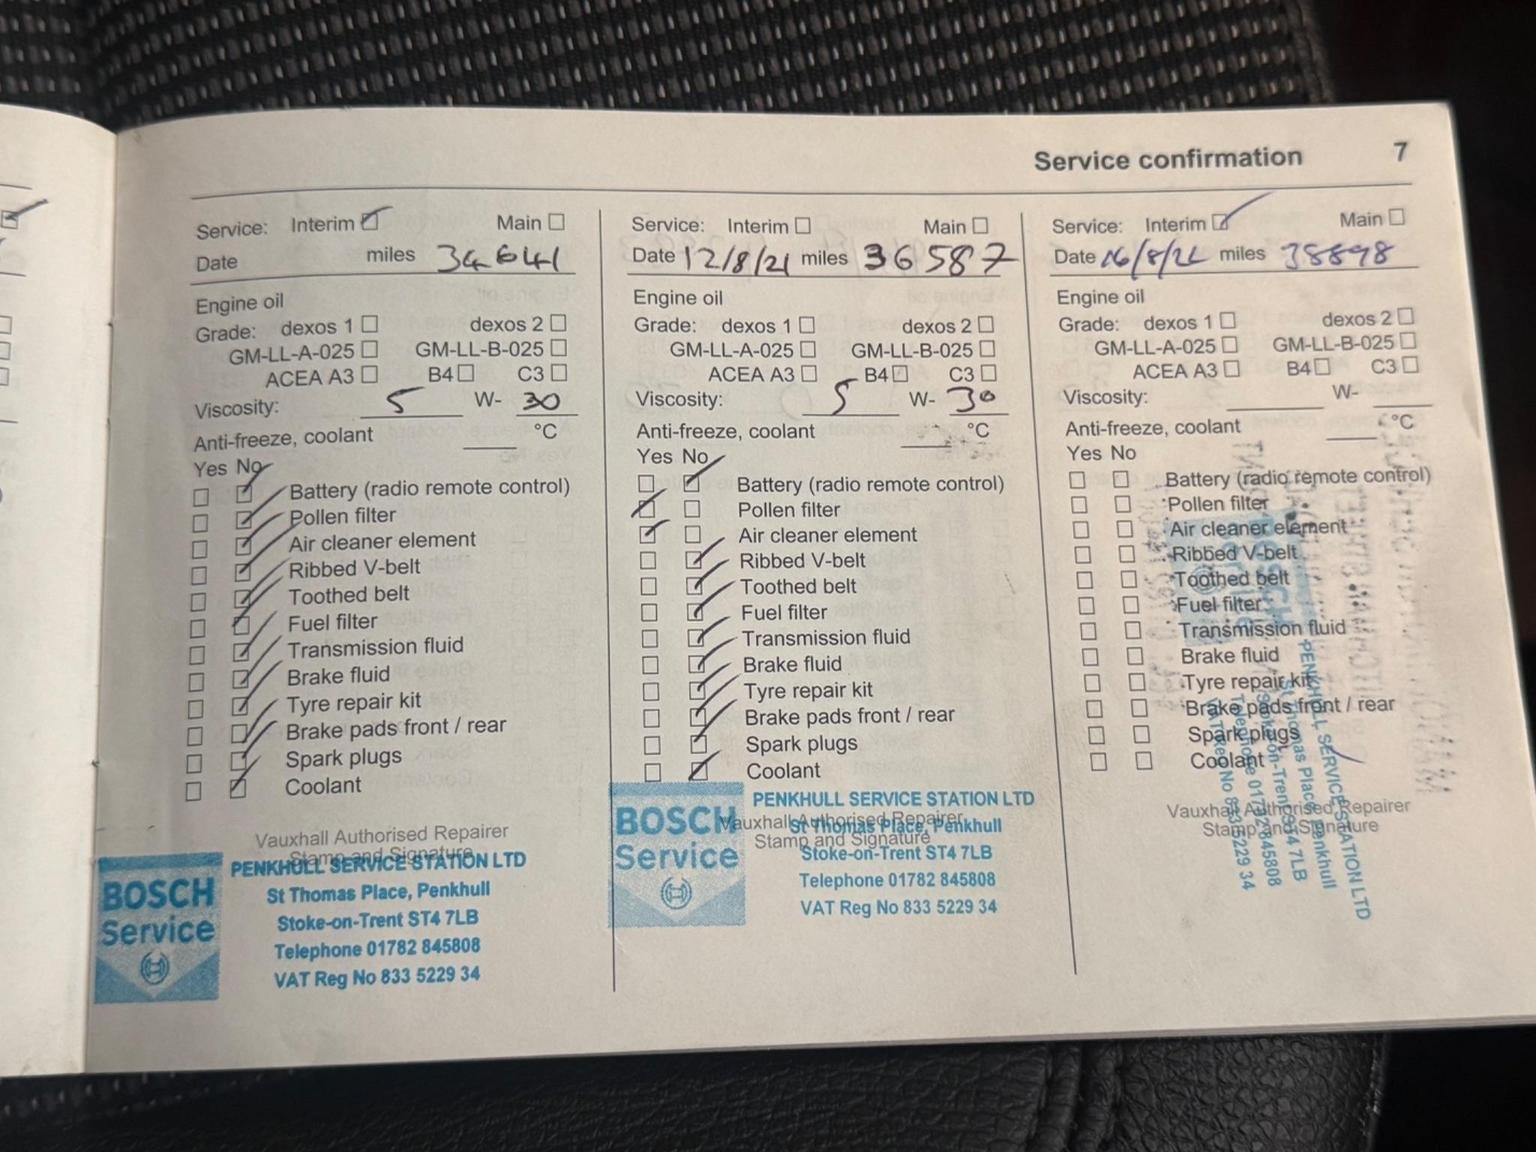 Service confirmation 7
Service: Interim Main
Date miles 34641
Engine oil
Grade: dexos 1 dexos 2
GM-LL-A-025 GM-LL-B-025
ACEA A3 B4 C3
Viscosity: 5 W- 30
Anti-freeze, coolant °C
Yes No
Battery (radio remote control)
Pollen filter
Air cleaner element
Ribbed V-belt
Toothed belt
Fuel filter
Transmission fluid
Brake fluid
Tyre repair kit
Brake pads front / rear
Spark plugs
Coolant
Vauxhall Authorised Repairer
Stamp and Signature
BOSCH
Service
PENKHULL SERVICE STATION LTD
St Thomas Place, Penkhull
Stoke-on-Trent ST4 7LB
Telephone 01782 845808
VAT Reg No 833 5229 34
Service: Interim Main
Date 12/8/21 miles 36587
Engine oil
Grade: dexos 1 dexos 2
GM-LL-A-025 GM-LL-B-025
ACEA A3 B4 C3
Viscosity: 5 W- 30
Anti-freeze, coolant °C
Yes No
Battery (radio remote control)
Pollen filter
Air cleaner element
Ribbed V-belt
Toothed belt
Fuel filter
Transmission fluid
Brake fluid
Tyre repair kit
Brake pads front / rear
Spark plugs
Coolant
Vauxhall Authorised Repairer
Stamp and Signature
BOSCH
Service
PENKHULL SERVICE STATION LTD
St Thomas Place, Penkhull
Stoke-on-Trent ST4 7LB
Telephone 01782 845808
VAT Reg No 833 5229 34
Service: Interim Main
Date miles 38898
Engine oil
Grade: dexos 1 dexos 2
GM-LL-A-025 GM-LL-B-025
ACEA A3 B4 C3
Viscosity: W-
Anti-freeze, coolant °C
Yes No
Battery (radio remote control)
Pollen filter
Air cleaner element
Ribbed V-belt
Toothed belt
Fuel filter
Transmission fluid
Brake fluid
Tyre repair kit
Brake pads front / rear
Spark plugs
Coolant
Vauxhall Authorised Repairer
Stamp and Signature
BOSCH
PENKHULL SERVICE STATION LTD
St Thomas Place, Penkhull
Stoke-on-Trent ST4 7LB
Telephone 01782 845808
VAT Reg No 833 5229 34